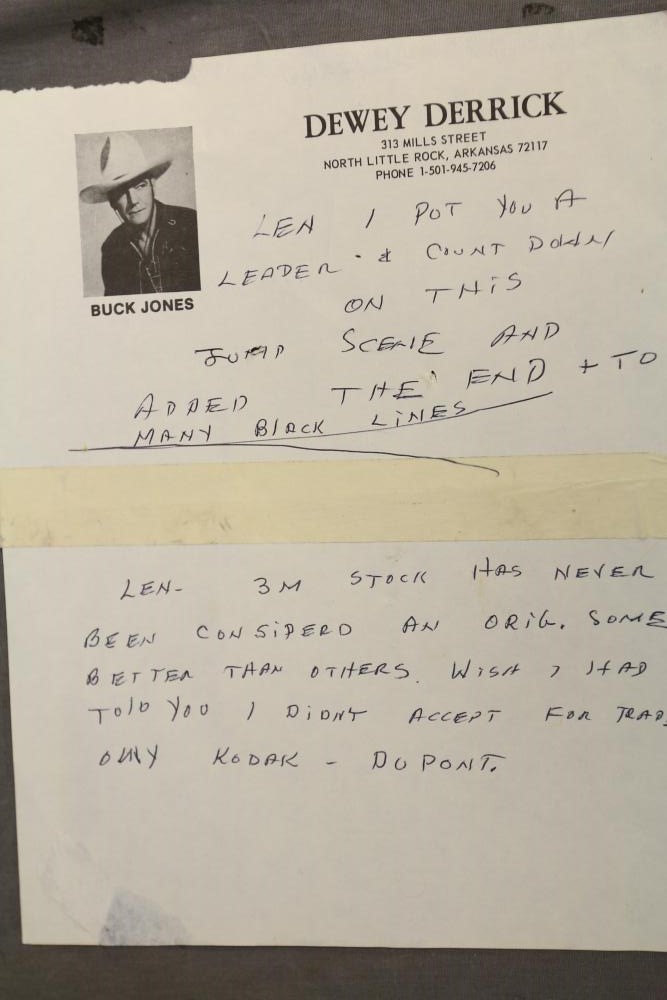 DEWEY DERRICK
313 MILLS STREET
NORTH LITTLE ROCK, ARKANSAS 72117
PHONE 1-501-945-7206
BUCK JONES
LEN I POT YOU A
LEADER & COUNT DOWN
ON THIS
JUMP SCENE AND
ADDED THE END + TO
MANY BLACK LINES
LEN- 3M STOCK HAS NEVER
BEEN CONSIDERD AN ORIG. SOME
BETTER THAN OTHERS. WISH I HAD
TOLD YOU I DIDNT ACCEPT FOR TRADE
ONLY KODAK - DUPONT.